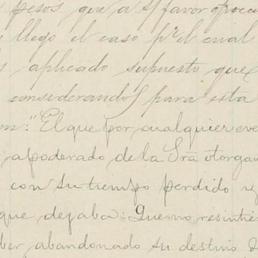 pesos, que a su favor
llego el caso pr el cual
aplicado supuesto que
considerando para esta
"El que por cualquier eve
apoderado de la Sra otorgan
con su tiempo perdido
que dejaba: Que no resintie
ber abandonado su destino d